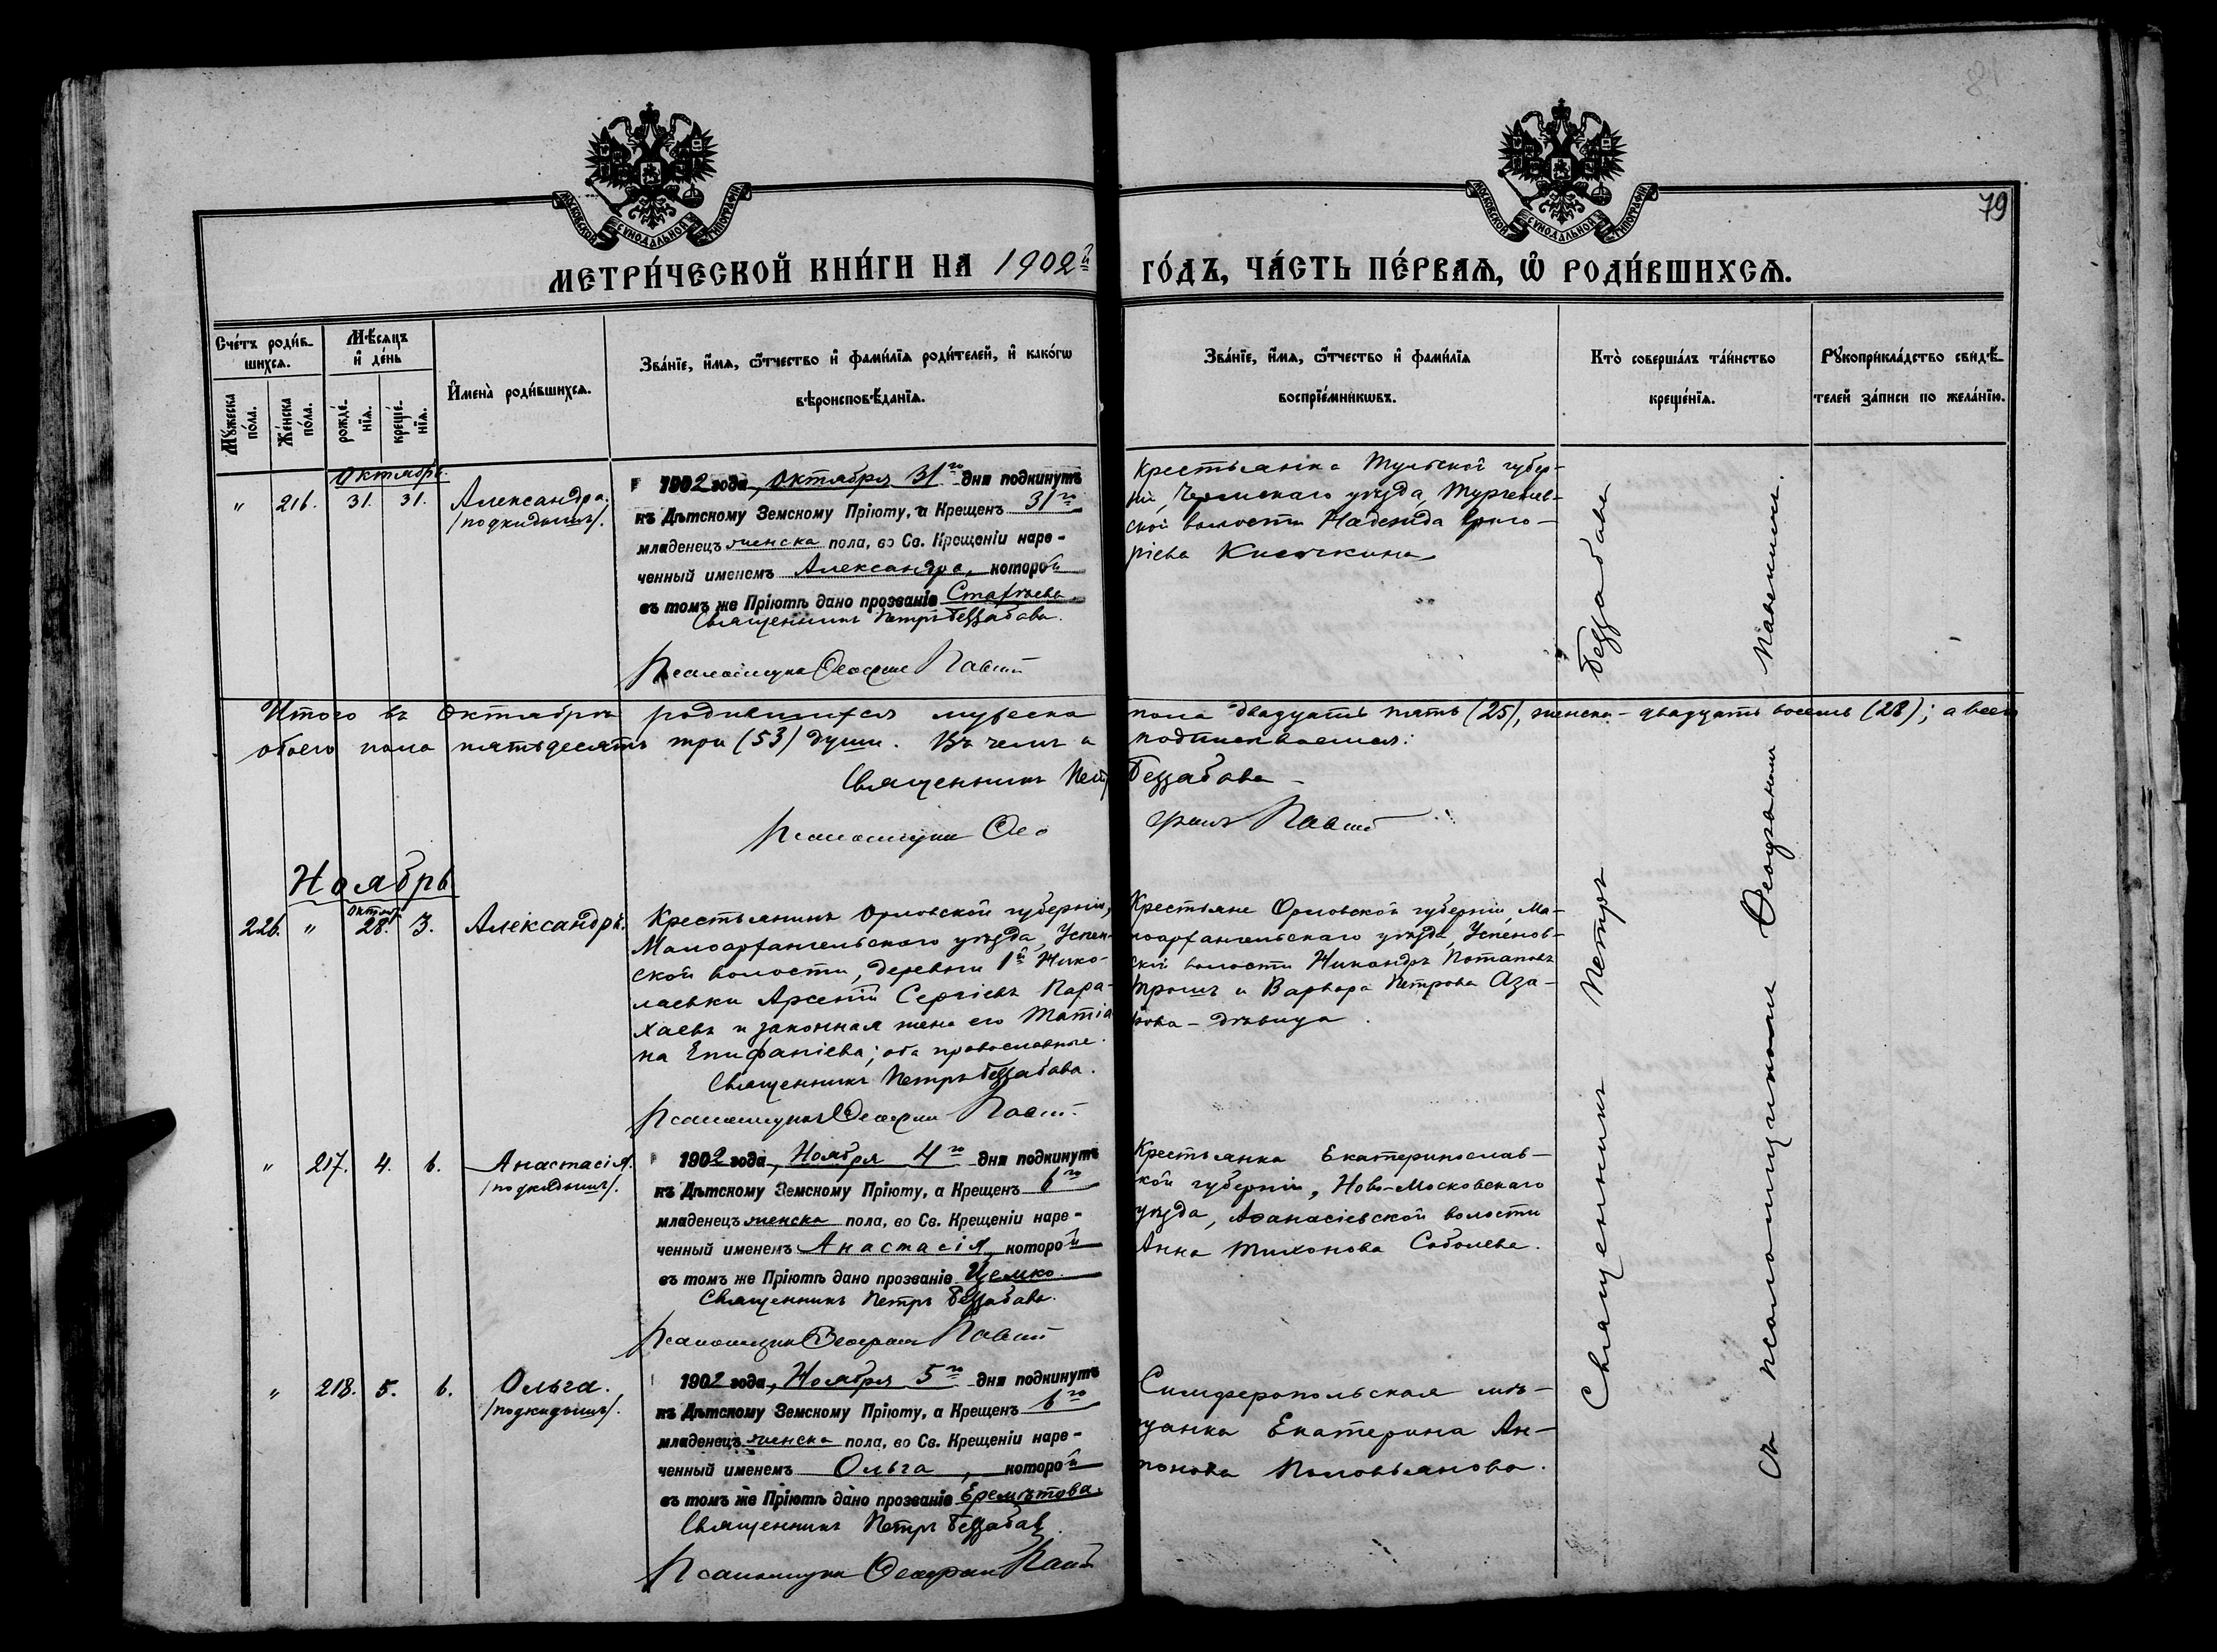 81
79
МОСКОВСКОЙ СѴНОДАЛЬНОЙ ТИПОГРАФІИ
МОСКОВСКОЙ СѴНОДАЛЬНОЙ ТИПОГРАФІИ
МЕТРИ́ЧЕСКОЙ КНИ́ГИ НА 1902й
ГО́ДЪ, ЧА́СТЬ ПЕ́РВАѦ, Ѡ҆ РОДИ́ВШИХСѦ.
Сче́тъ роди́в-
шихсѧ.
Мꙋ́жеска по́ла.
Же́нска по́ла.
Мѣ́сѧцъ
и҆ де́нь
рожде́-
нїѧ.
креще́-
нїѧ.
И҆мена̀ роди́вшихсѧ.
Зва́нїе, и҆́мѧ, ѻ҆́тчество и҆ фами́лїѧ роди́телей, и҆ како́гѡ
вѣроисповѣ́данїѧ.
Зва́нїе, и҆́мѧ, ѻ҆́тчество и҆ фами́лїѧ
воспрїе́мникѡвъ.
Кто̀ соверша́лъ та́инство
креще́нїѧ.
Рꙋкоприкла́дство свидѣ́-
телей за́писи по жела́нїю.
Октябрь.
" 216. 31. 31. Александра.
/подкидышъ/.
1902 года, Октября 31го дня подкинутъ
къ Дѣтскому Земскому Пріюту, а Крещенъ 31го
младенецъ женска пола, во Св. Крещеніи наре-
ченный именемъ Александра, которой
въ томъ же Пріютѣ дано прозваніе
Священникъ Петръ Беззабава.
Псаломщикъ Ѳеофанъ
Крестьянка Тульской губер-
ніи, уѣзда, Тургенев-
ской волости Надежда Григо-
ріева
Итого въ Октябрѣ родившихся мужеска пола двадцать пять (25), женска - двадцать восемь (28); а всего
обоего пола пятьдесятъ три (53) души. Въ чемъ и подписываемся:
Священникъ Петръ Беззабава
Псаломщикъ Ѳеофанъ
Ноябрь
226. " Октяб. 28. 3. Александръ.
Крестьянинъ Орловской губерніи,
Малоархангельскаго уѣзда, Успен-
ской волости, деревни 1й Нико-
лаевки Арсеній Сергіевъ Пара-
хаевъ и законная жена его Татіа-
на Епифаніева; оба православные.
Священникъ Петръ Беззабава.
Псаломщикъ Ѳеофанъ
Крестьяне Орловской губерніи, Ма-
лоархангельскаго уѣзда, Успенов-
ской волости Никандръ Потаповъ
и Варвара Петрова Аза-
рова - дѣвица.
" 217. 4. 6. Анастасія.
/подкидышъ/.
1902 года, Ноября 4го дня подкинутъ
къ Дѣтскому Земскому Пріюту, а Крещенъ 6го
младенецъ женска пола, во Св. Крещеніи наре-
ченный именемъ Анастасія, которой
въ томъ же Пріютѣ дано прозваніе Цемко.
Священникъ Петръ Беззабава.
Псаломщикъ Ѳеофанъ
Крестьянка Екатеринослав-
кой губерніи, Ново-Московскаго
уѣзда, Аѳанасіевской волости
Анна Тихонова Соболева.
" 218. 5. 6. Ольга.
/подкидышъ/.
1902 года, Ноября 5го дня подкинутъ
къ Дѣтскому Земскому Пріюту, а Крещенъ 6го
младенецъ женска пола, во Св. Крещеніи наре-
ченный именемъ Ольга, которой
въ томъ же Пріютѣ дано прозваніе Еремѣтова.
Священникъ Петръ Беззабава.
Псаломщикъ Ѳеофанъ
Симферопольская мѣ-
щанка Екатерина Ан-
тонова
Священникъ Петръ Беззабава
съ псаломщикомъ Ѳеофаномъ